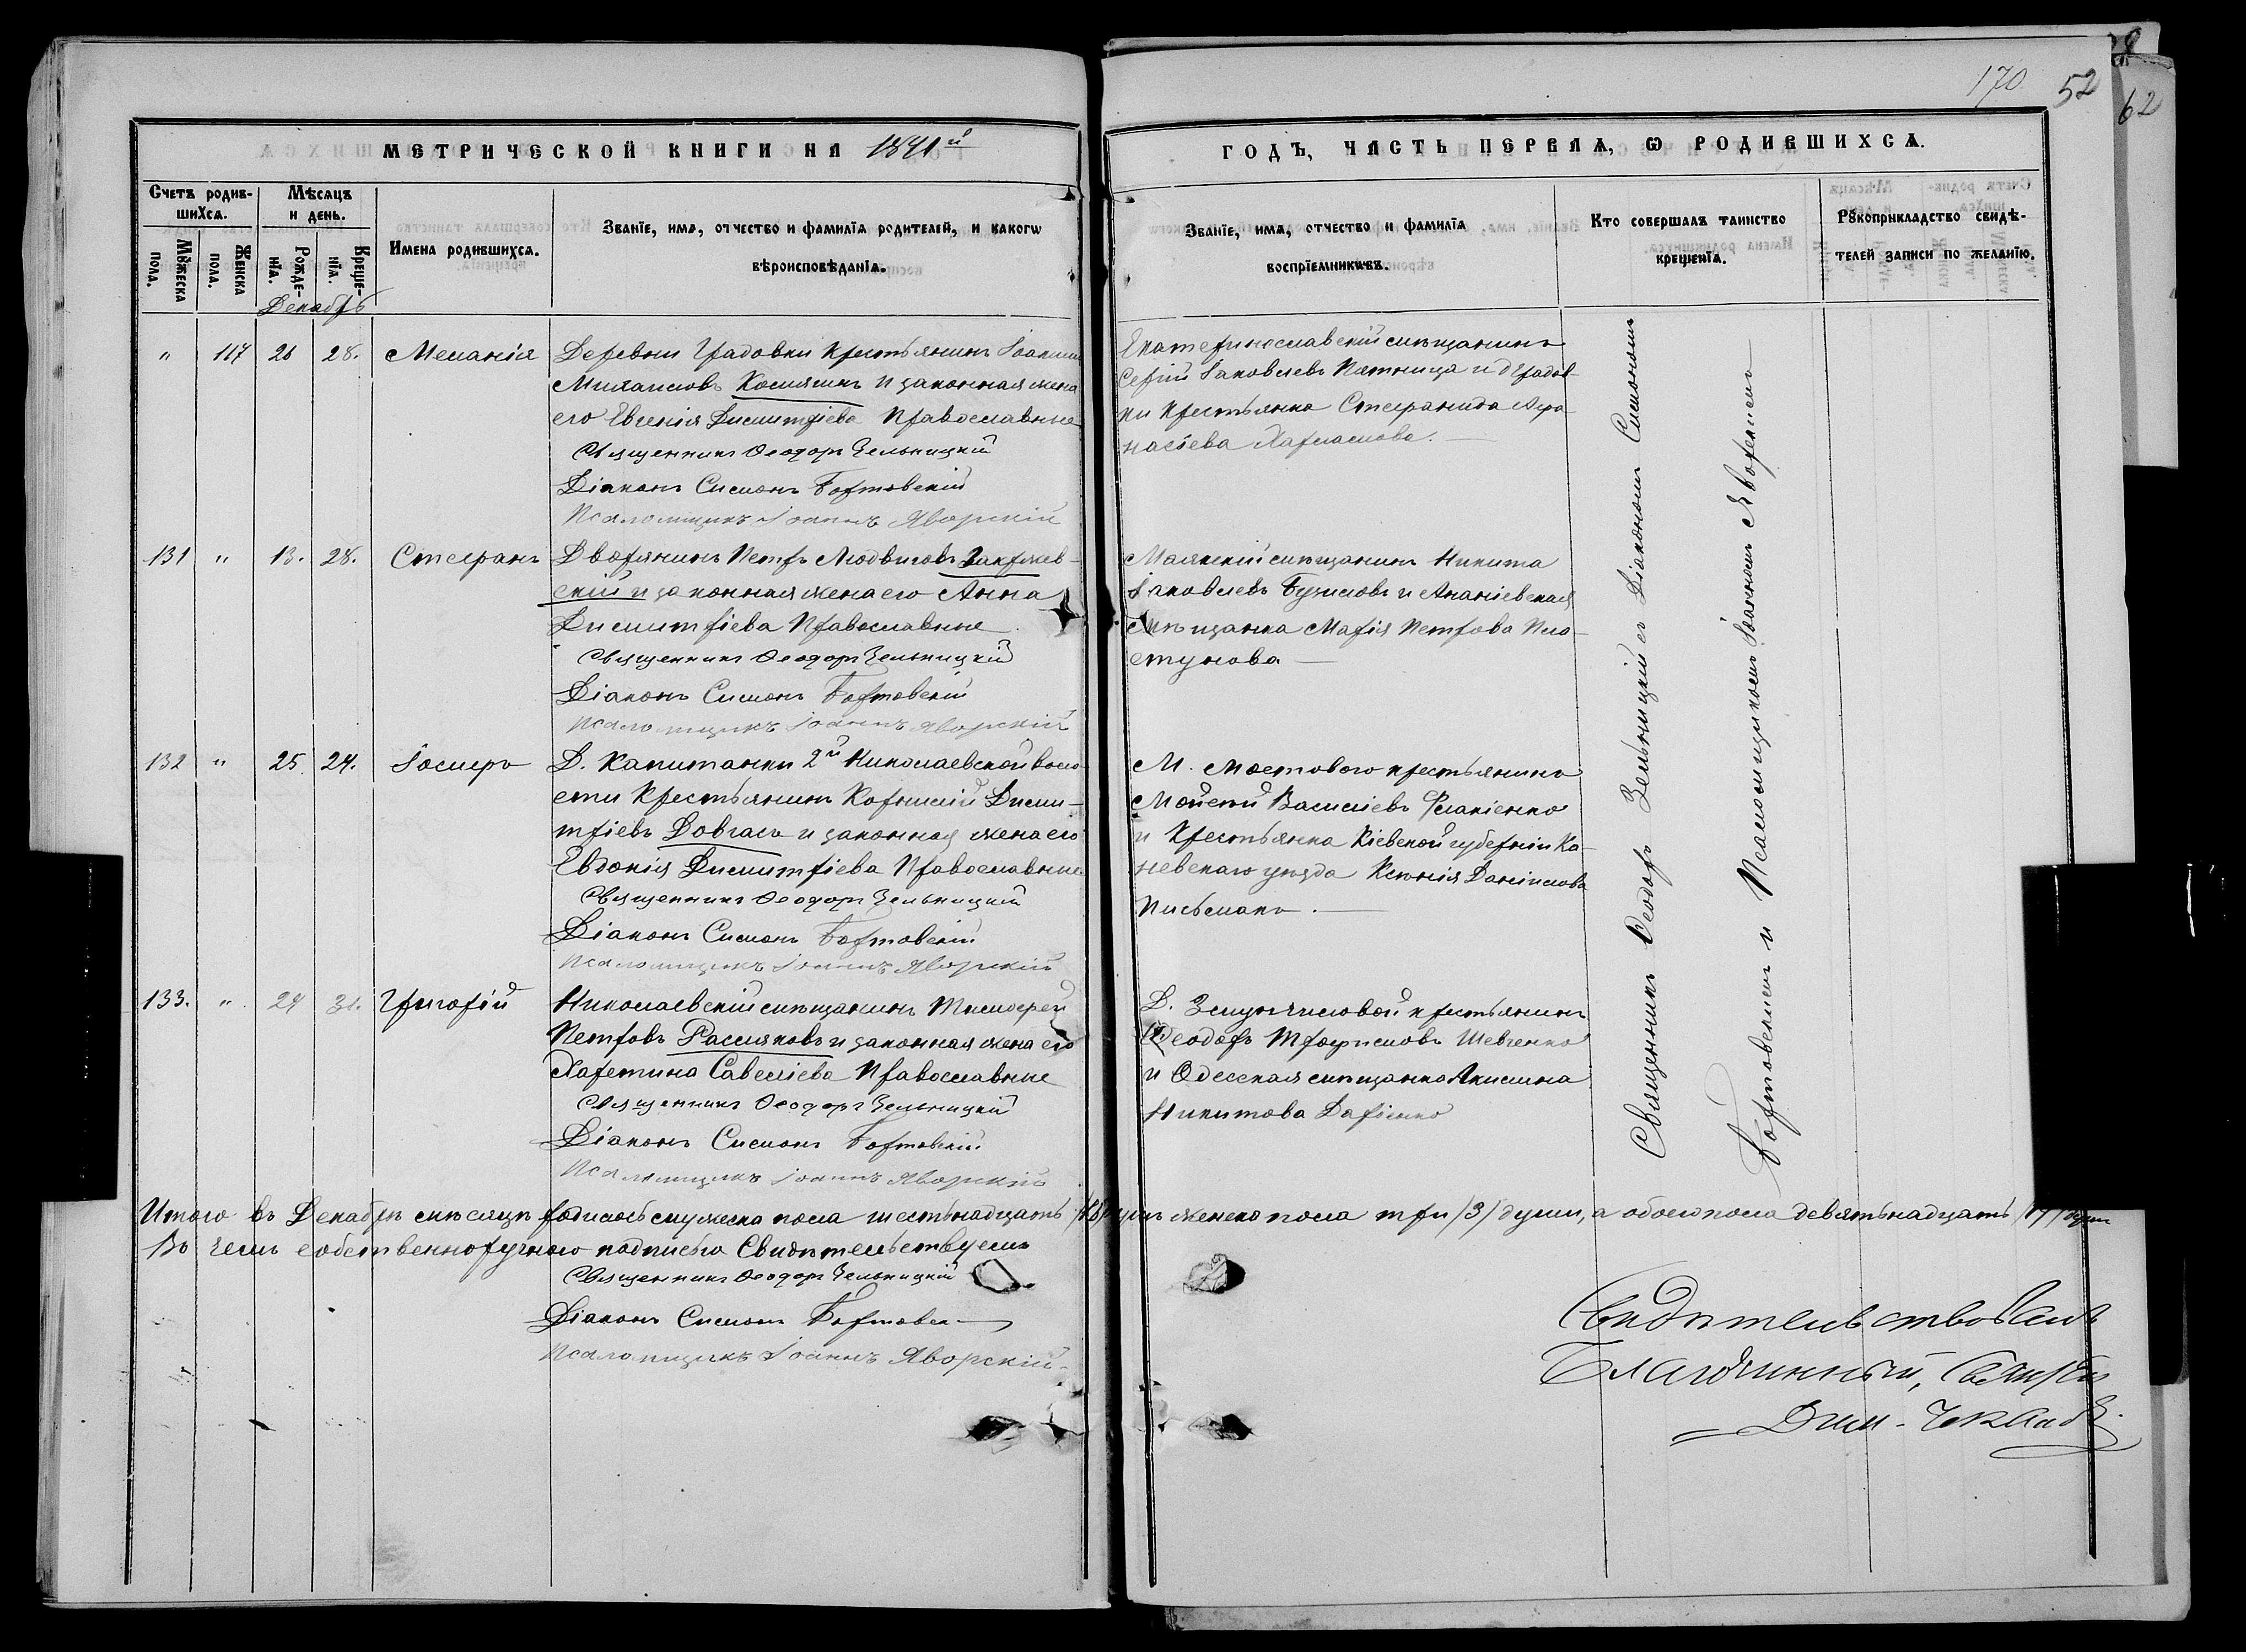 170 52
62
МЕТРИЧЕСКОЙ КНИГИ НА 1891й ГОДЪ, ЧАСТЬ ПЕРВАѦ, Ѡ РОДИВШИХСѦ.
Счетъ родив-
шихсѧ.
Мꙋжеска пола.
Женска пола.
Мѣсѧцъ
и день.
Рожде-
нїѧ.
Креще-
нїѧ.
Имена родившихсѧ.
Званїе, имѧ, отчество и фамилїѧ родителей, и какогѡ
вѣроисповѣданїѧ.
Званїе, имѧ, отчество и фамилїѧ
воспрїемниковъ.
Кто совершалъ таинство
крещенїѧ.
Рꙋкоприкладство свидѣ-
телей записи по желанїю.
Декабрь
" 117 26 28. Меланія
Деревни Градовки крестьянинъ Іоакимъ
Михаиловъ Космякъ и законная жена
его Евгенія Димитріева Православные
Священникъ Ѳеодоръ Зельницкій
Діаконъ Симонъ Бортовскій
Псаломщикъ Іоаннъ Яворскій
Екатеринославскій мѣщанинъ
Сергій Іаковлевъ Пятница и д. Градов-
ки крестьянка Стефанида Афа-
насіева Харламова.
131 " 13. 28. Стефанъ
Дворянинъ Петръ Людвиговъ Закржев-
скій и законная жена его Анна
Димитріева Православные
Священникъ Ѳеодоръ Зельницкій
Діаконъ Симонъ Бортовскій
Псаломщикъ Іоаннъ Яворскій
Маякскій мѣщанинъ Никита
Іаковлевъ Бузиловъ и Ананіевская
мѣщанка Марія Петрова Пло-
стунова
132 " 25. 24. Іосифъ
Д. Капитанки 2й Николаевской воло-
сти Крестьянинъ Корнилій Дими-
тріевъ Довгаль и законная жена его
Евдокія Димитріева Православные
Священникъ Ѳеодоръ Зельницкій
Діаконъ Симонъ Бортовскій
Псаломщикъ Іоаннъ Яворскій
М. Мостового крестьянинъ
Мойсей Василіевъ
и Крестьянка Кіевской губерніи Ка-
невскаго уѣзда Ксенія Даніилова
Письмакъ.
133. " 24 31. Григорій
Николаевскій мѣщанинъ Тимофей
Петровъ Рассмяковъ и законная жена его
Харетина Савеліева Православные
Священникъ Ѳеодоръ Зельницкій
Діаконъ Симонъ Бортовскій
Псаломщикъ Іоаннъ Яворскій
Д. крестьянинъ
Ѳеодоръ Трофимовъ Шевченко
и Одесская мѣщанка Акилина
Никитова Даріенко
Священникъ Ѳеодоръ Зельницкій съ Діакономъ Симономъ
Бортовскимъ и Псаломщикомъ Іоанномъ Яворскимъ
Итого въ Декабрѣ мѣсяцѣ родилось мужеска пола шестьнадцать /16/ душъ женска пола три /3/ души, а обоего пола девятьнадцать /19/ душъ
Въ чемъ собственноручною подписью Свидѣтельствуемъ
Священникъ Ѳеодоръ Зельницкій
Діаконъ Симонъ Бортовск
Псаломщикъ Іоаннъ Яворскій
Свидѣтельствовалъ
Благочинный,
Дим.